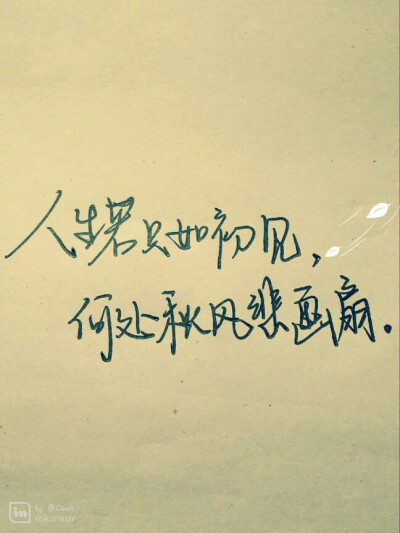 人生若只如初见，
何处秋风悲画扇。
in
by